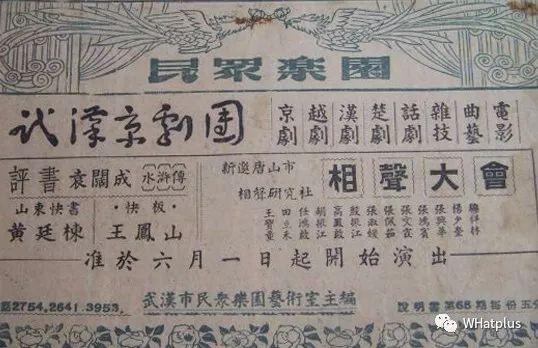 民眾楽園
武漢京劇團
京劇 越劇 漢劇 楚劇 話劇 雜技 曲藝 電影
評書 袁闊成 水滸傳
山東快書 ·快板·
黄廷棟 王鳳山
新邀唐山市
相聲研究社
相聲大會
王寶童 田立禾 任鴻啟 胡振江 高鳳 殷振江 張淑媛 張佩茹 張鴻賓 張興華 楊少奎
准於六月一日起開始演出
話2754,2641,3953,
武漢市民眾樂園藝術室主編
說明書第65期每份五分
WHatplus